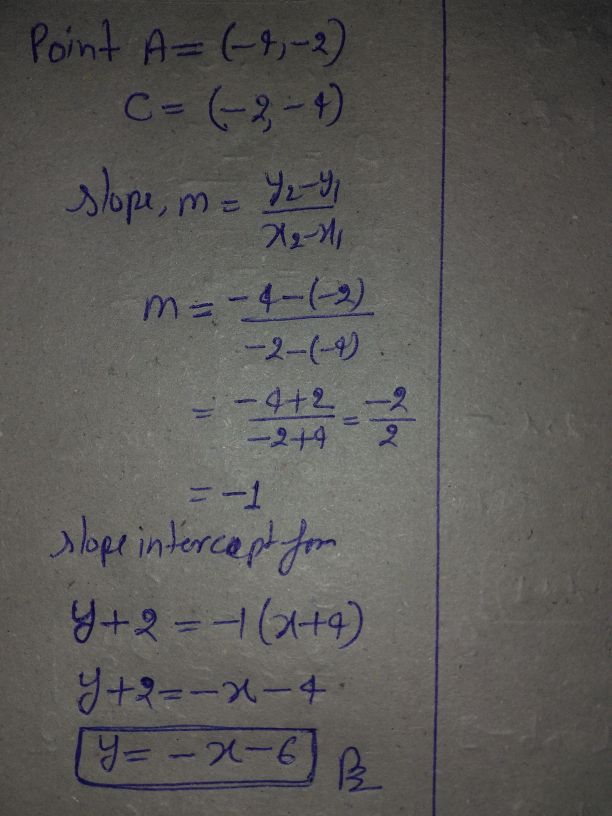 Point A = (-4, -2)
C = (-2, -4)
slope, m = y₂-y₁ / x₂-x₁
m = -4-(-2) / -2-(-4)
= -4+2 / -2+4 = -2/2
= -1
slope intercept form
y+2 = -1(x+4)
y+2 = -x-4
y = -x-6